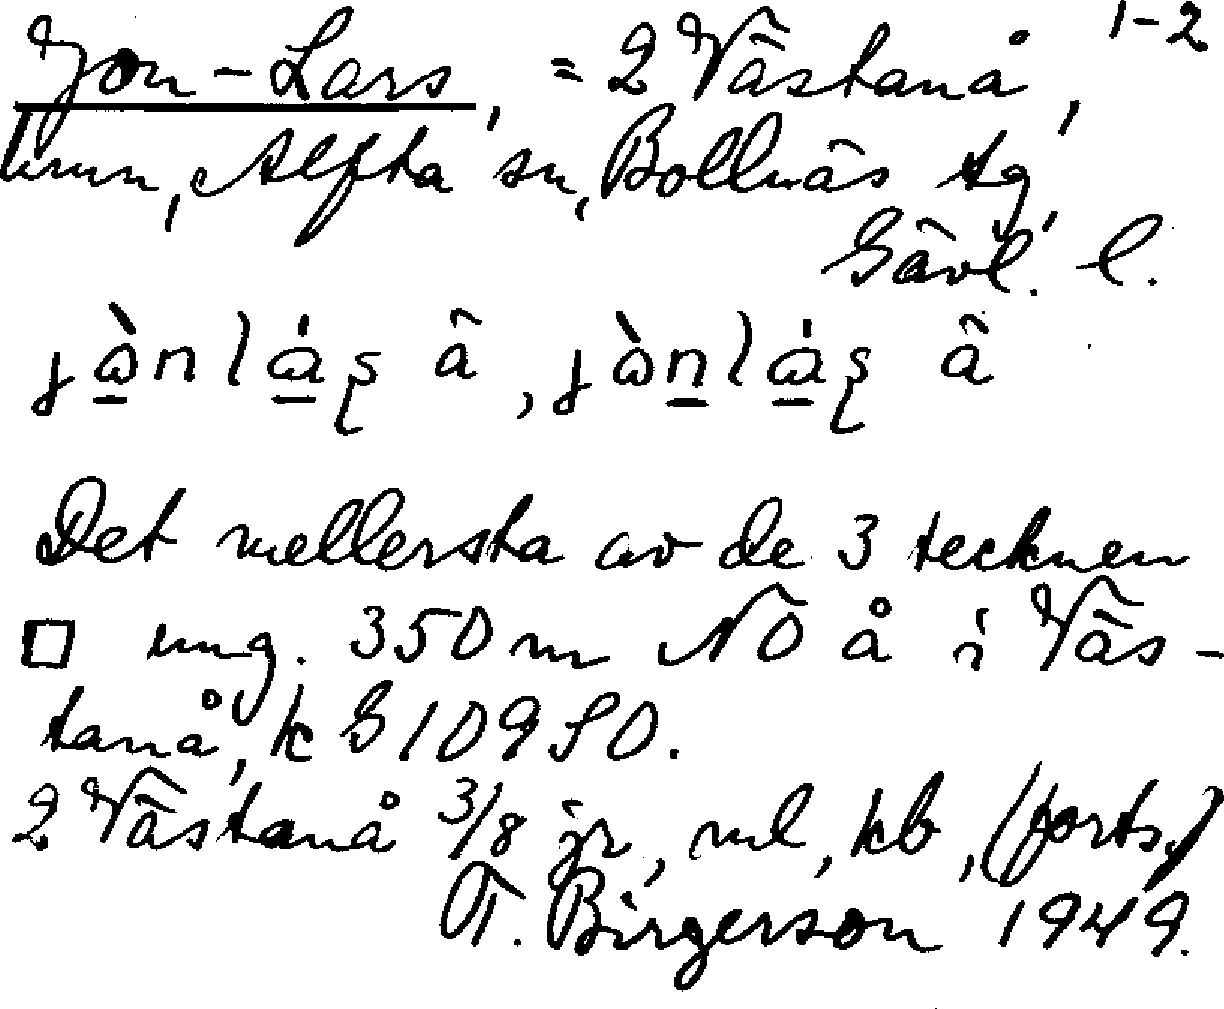 1-2
Jon-Lars, = 2 Västanå,
hmn, Alfta sn, Bollnäs tg
Gävl. l.
Det mellersta av de 3 tecknen
□ ung. 350 m NO å i Väs-
tanå, k G 109 SO.
2 Västanå 3/8 jr, ml, kb, (forts.)
T. Birgerson 1949.